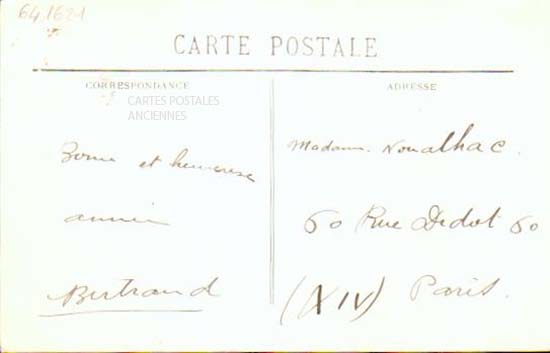 641621
CARTE POSTALE
CORRESPONDANCE
CARTES POSTALES
ANCIENNES
Bonne et heureuse
année
Bertrand
ADRESSE
Madame Noualhac.
60 Rue Didot 60
(XIV) Paris.